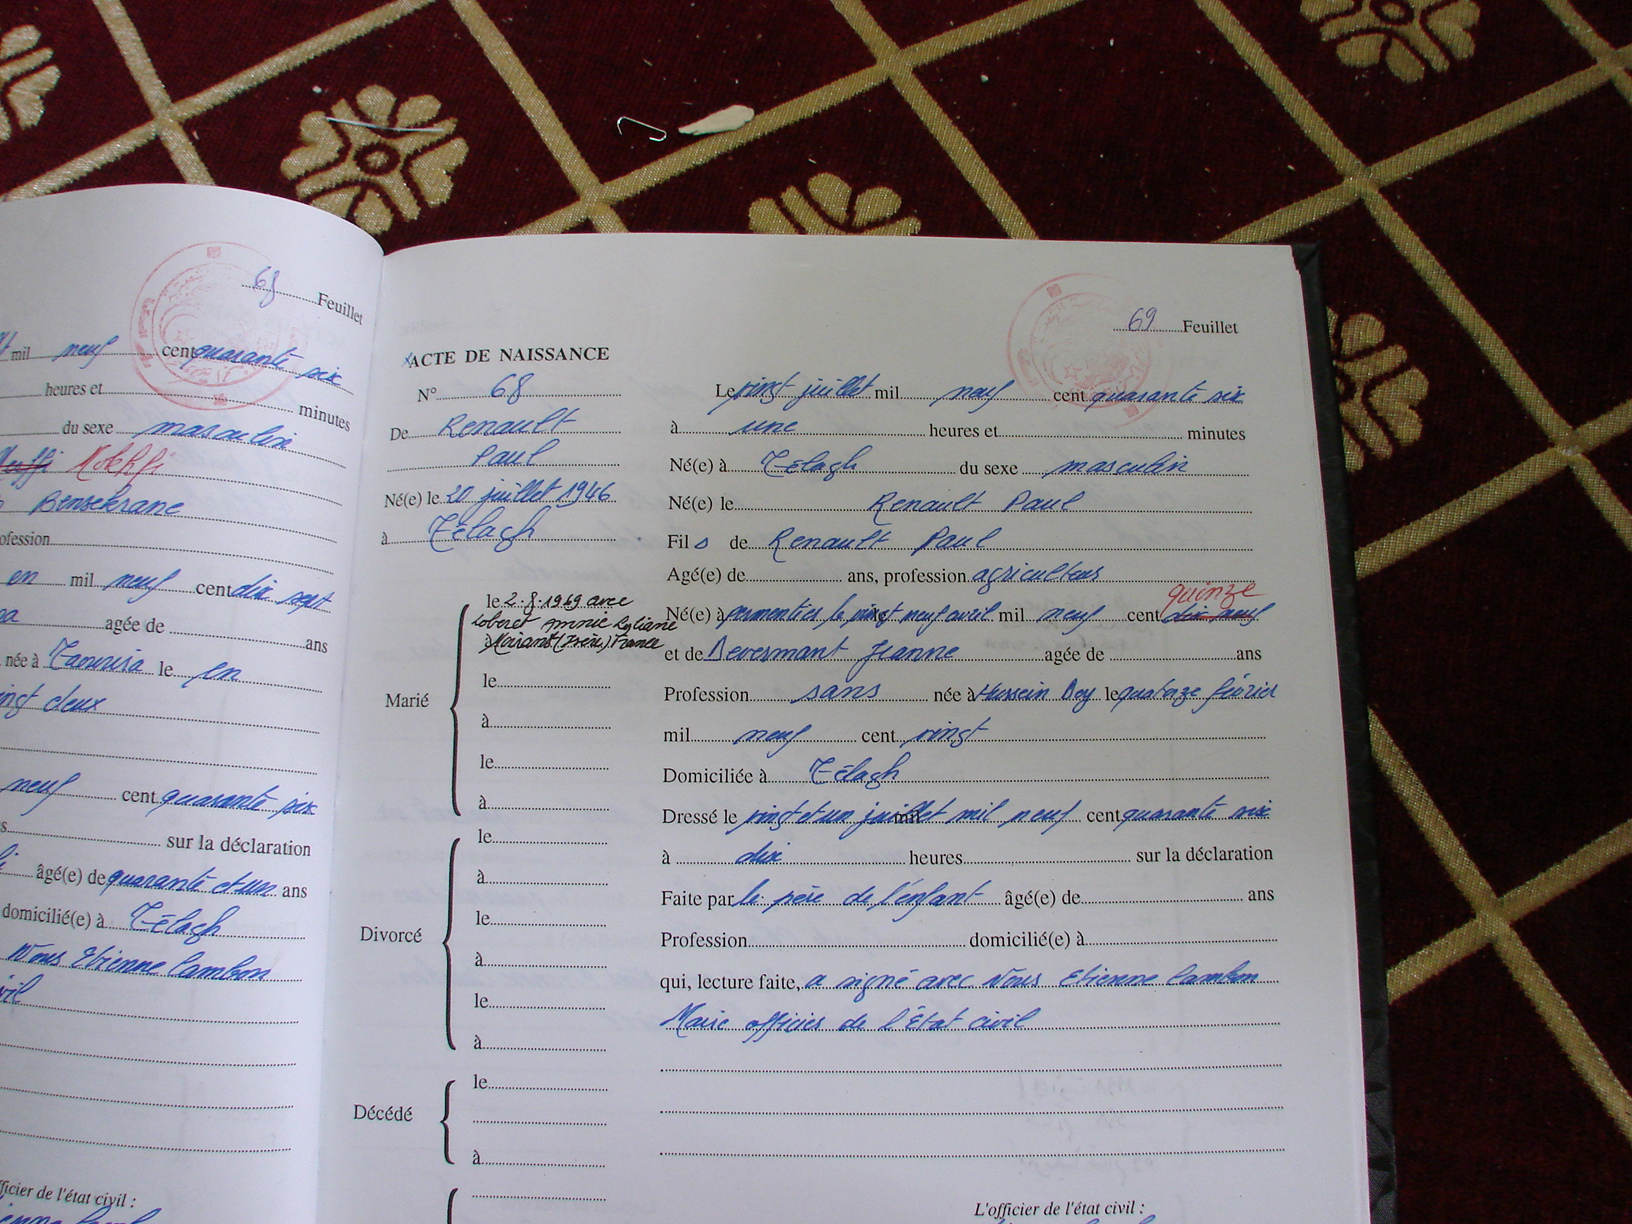 68 Feuillet
mil neuf cent quarante six
heures et minutes
du sexe masculin
Mokhfi
Bensekrane
ofession
en mil neuf cent dix sept
agée de ans
née à Taourira le en
ingt deux
neuf cent quarante six
sur la déclaration
âgé(e) de quarante et un ans
domicilié(e) à Télagh
Nous Etienne Lambon
vil
fficier de l'état civil :
69 Feuillet
ACTE DE NAISSANCE
N° 68
De Renault
Paul
Né(e) le 20 juillet 1946
à Télagh
Marié
le 2.8.1969 avec
à Moirans (Isère) France
le
à
le
à
Divorcé
le
à
le
à
le
à
Décédé
le
à
Le vingt juillet mil neuf cent quarante six
à une heures et minutes
Né(e) à Télagh du sexe masculin
Né(e) le Renault Paul
Fil s de Renault Paul
Agé(e) de ans, profession agriculteur
quinze
Né(e) à parmentier le vingt neuf avril mil neuf cent dix neuf
et de Devermant Jeanne agée de ans
Profession sans née à Hussein Dey le quatorze février
mil neuf cent vingt
Domiciliée à Télagh
Dressé le vingt et un juillet mil mil neuf cent quarante six
à dix heures sur la déclaration
Faite par le père de l'enfant âgé(e) de ans
Profession domicilié(e) à
qui, lecture faite, a signé avec Nous Etienne Lambon
Maire officier de l'État civil
L'officier de l'état civil :